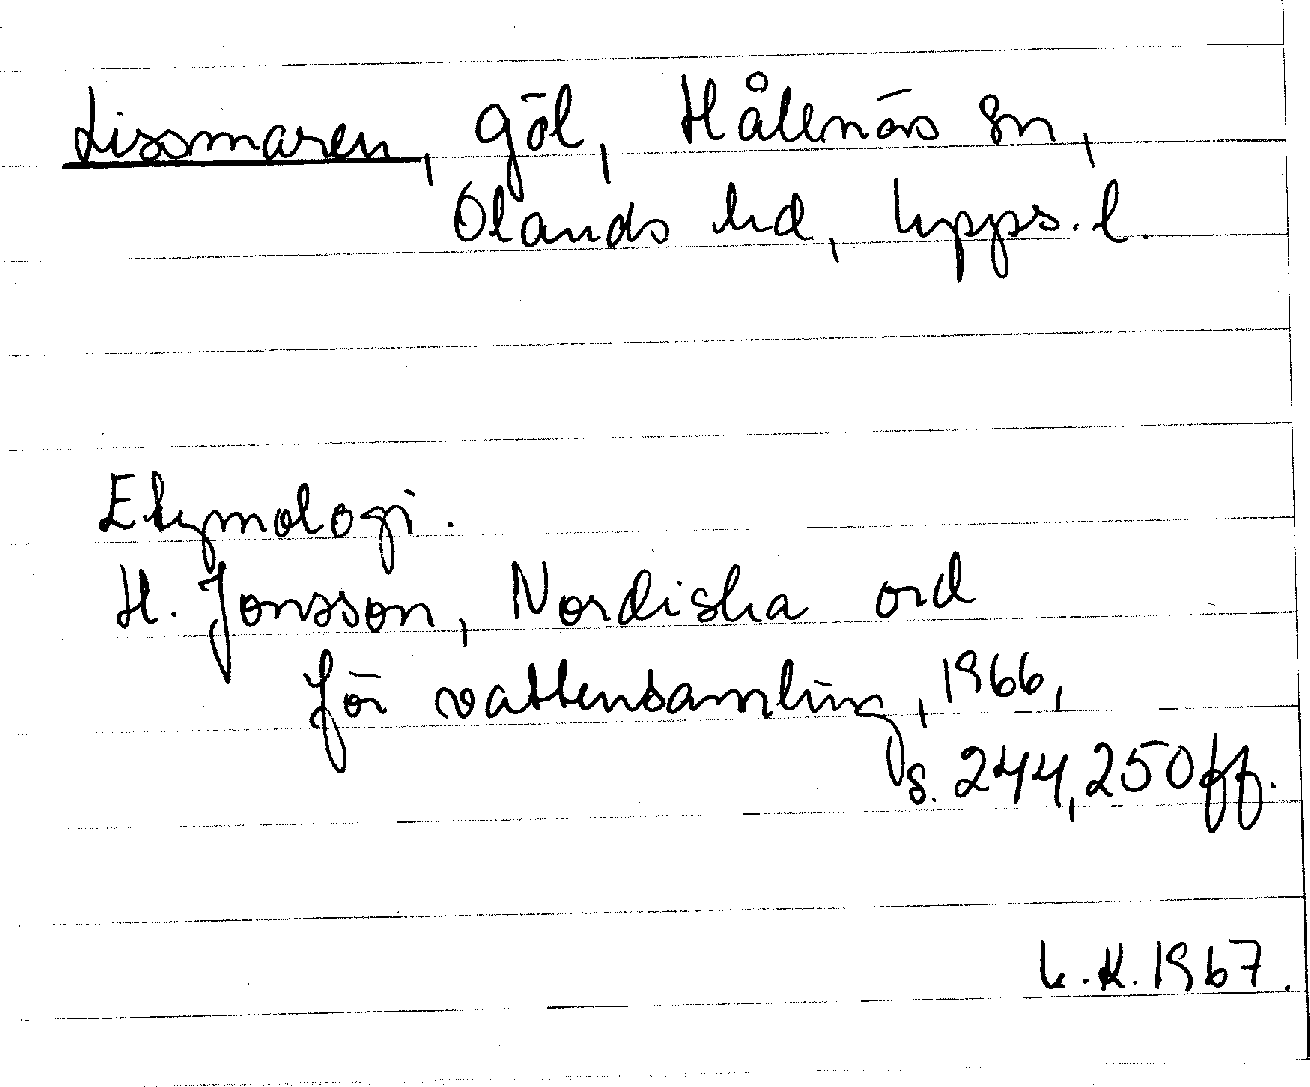 Lissmaren, göl, Hållnäs sn,
Olands hd, Upps. l.
Etymologi.
H. Jonsson, Nordiska ord
för vattensamling, 1966,
s. 244, 250 ff.
K. 1967.